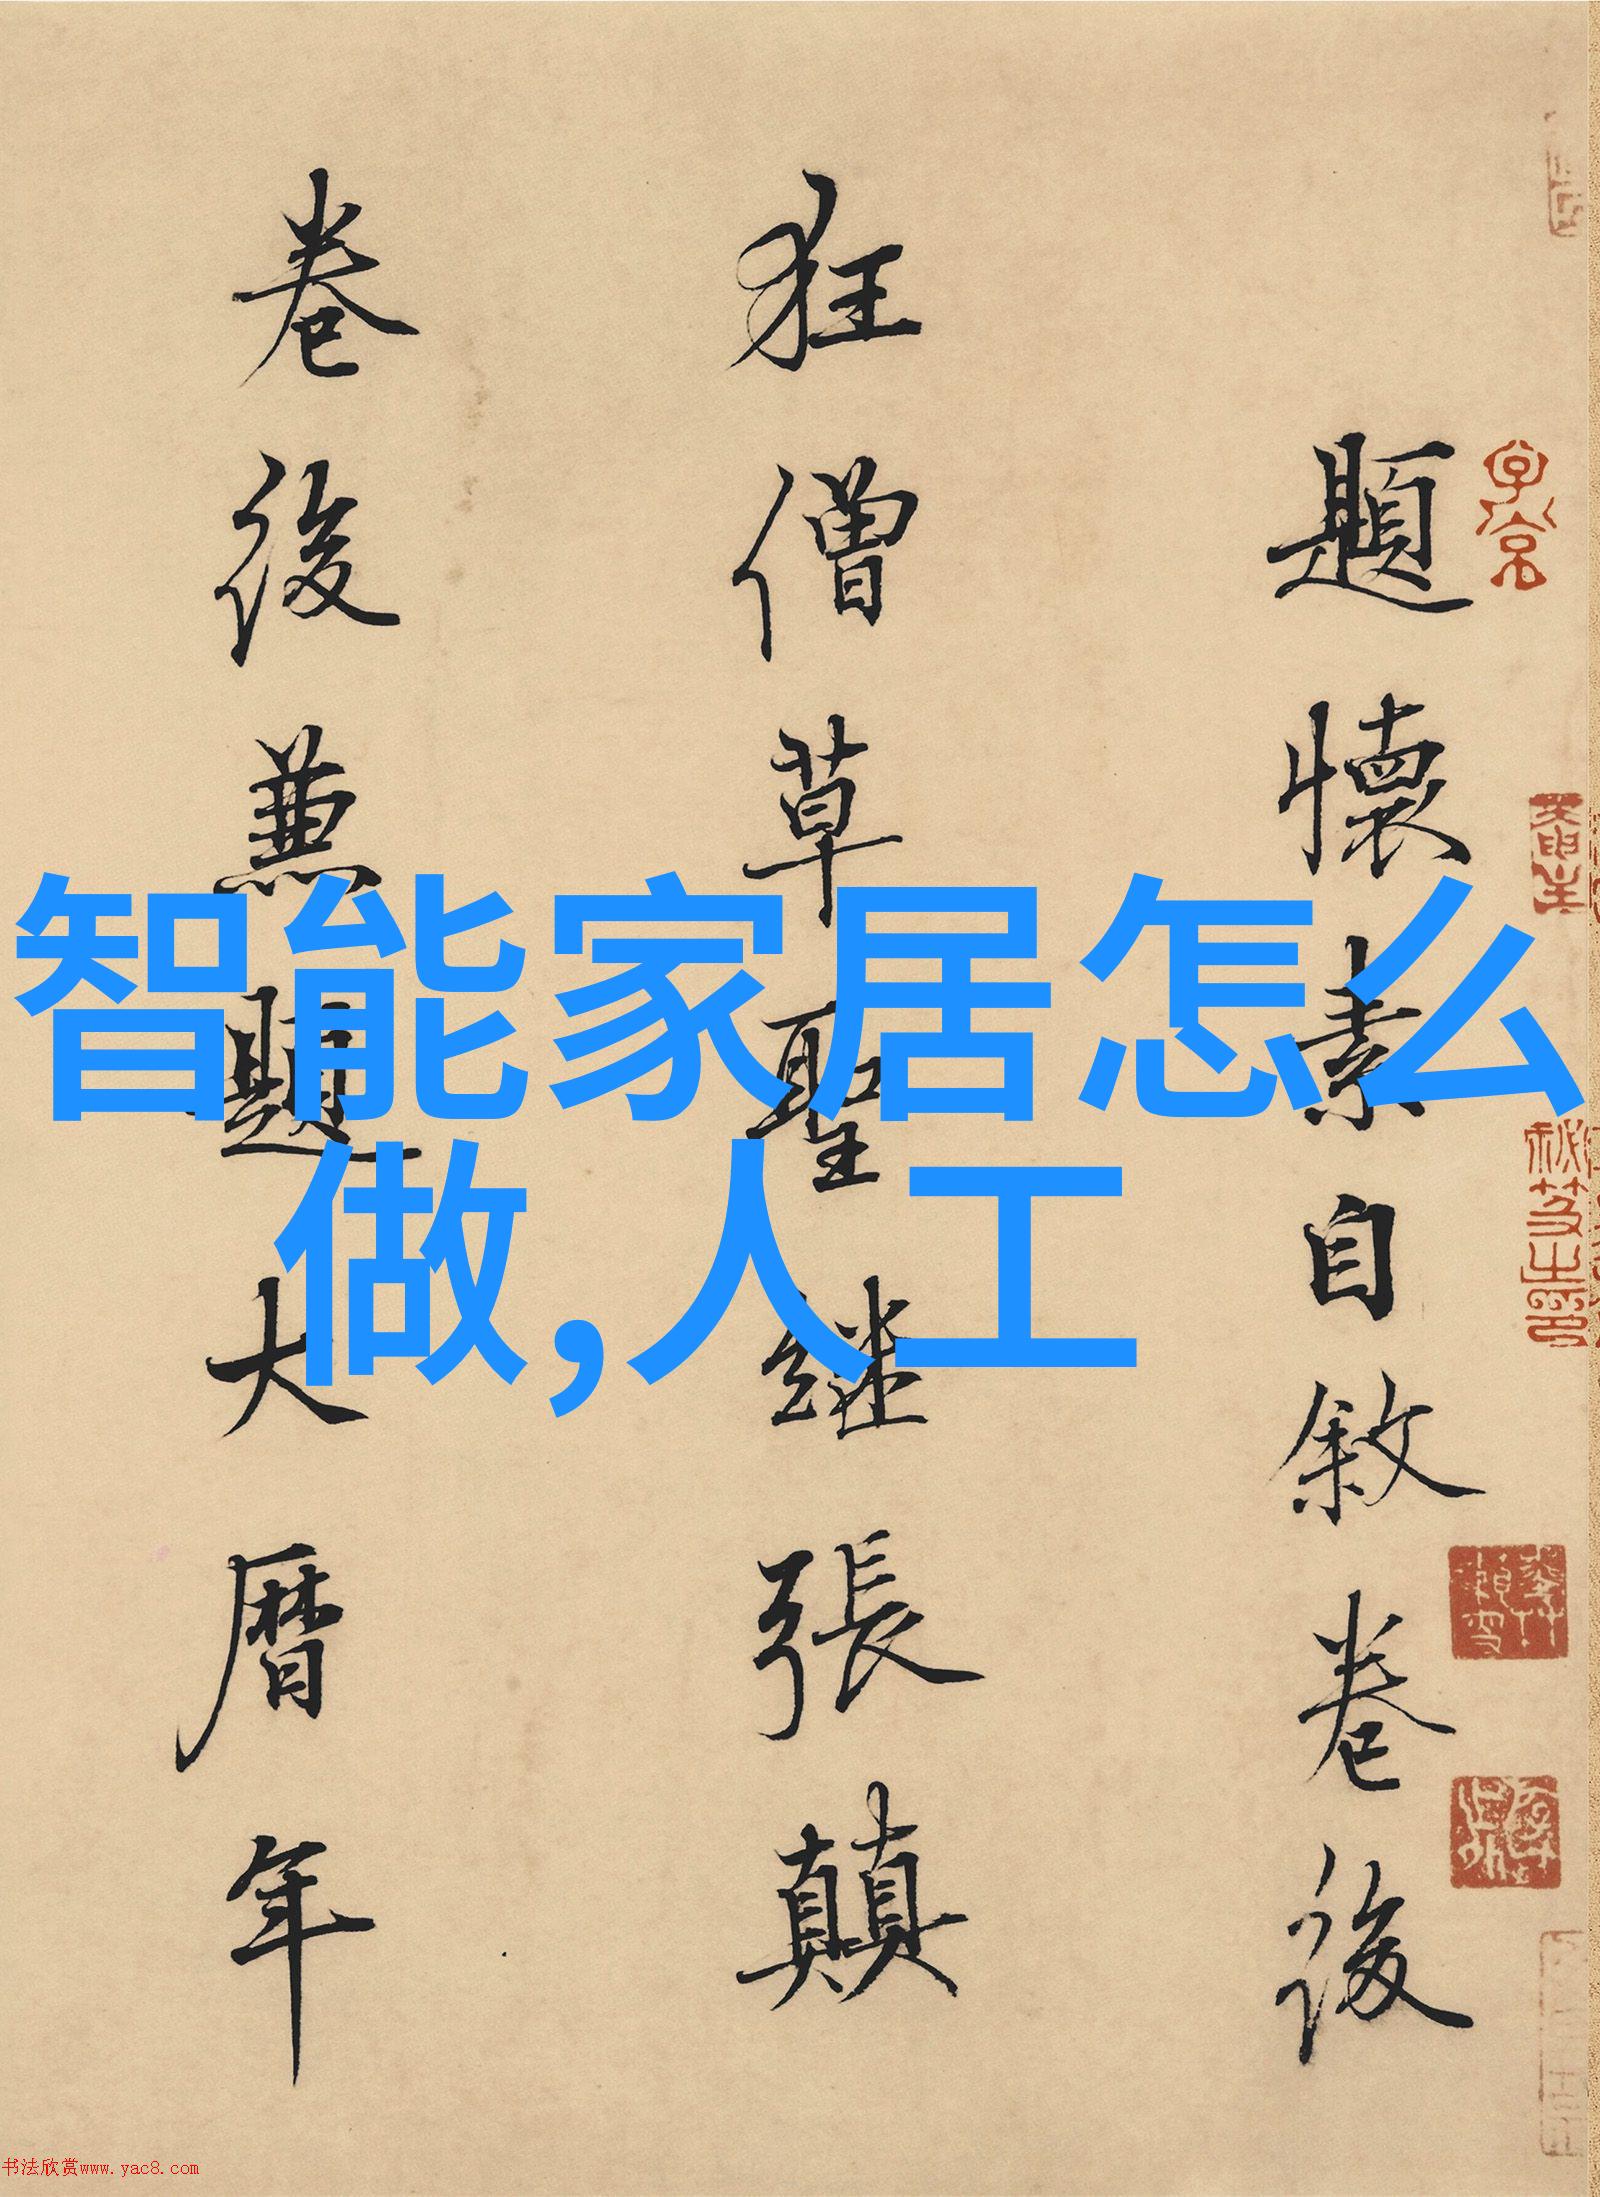 題懷素自敘卷後
狂僧草聖継張顛
卷後兼題大曆年
智能家居怎么
做,人工
书法欣赏www.yac8.com